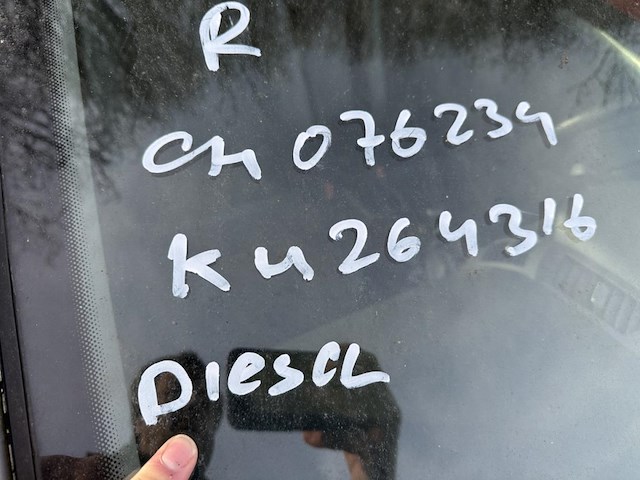 R
CH 076234
KU264316
DIESEL